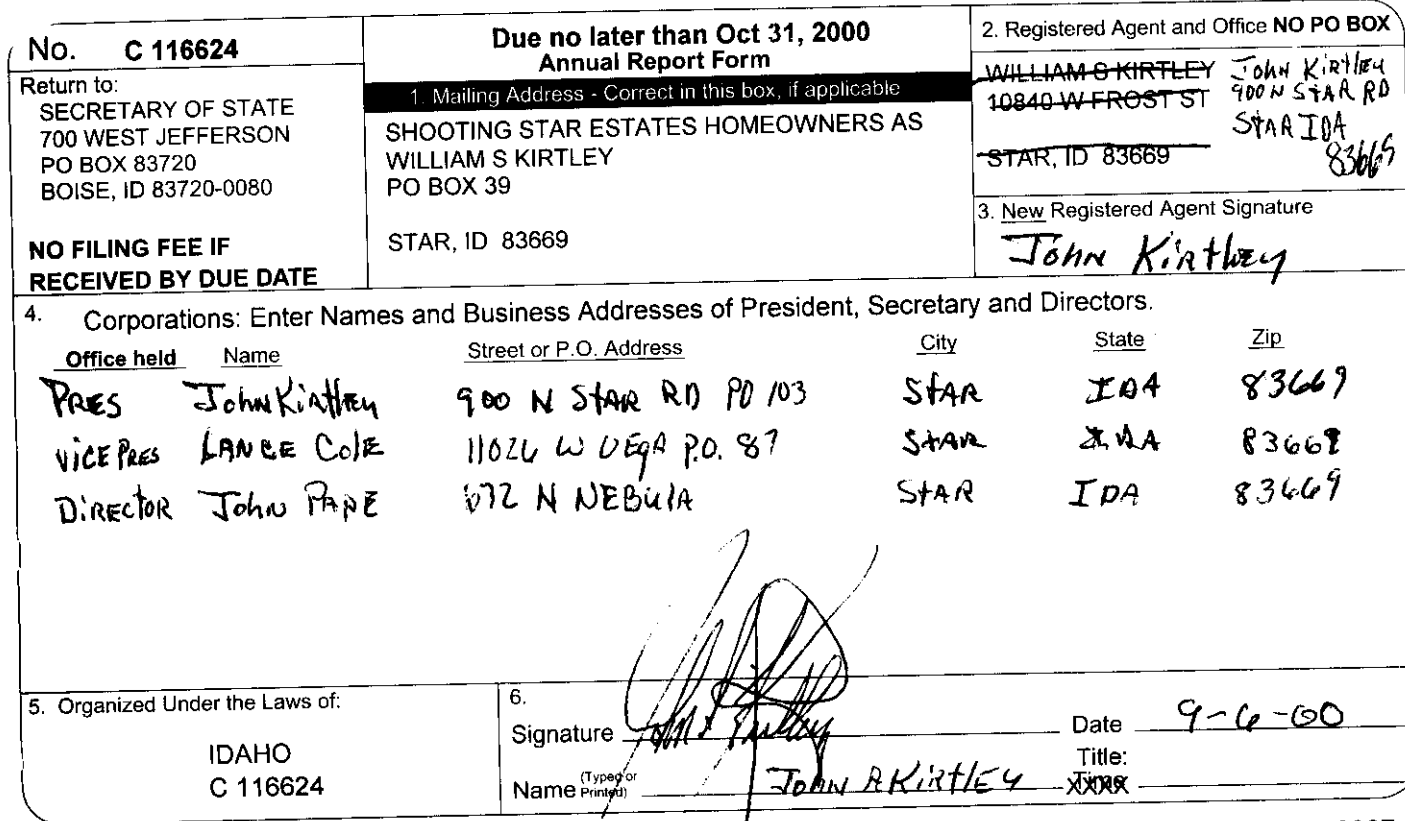 No. C 116624
Return to:
SECRETARY OF STATE
700 WEST JEFFERSON
PO BOX 83720
BOISE, ID 83720-0080
NO FILING FEE IF
RECEIVED BY DUE DATE
Due no later than Oct 31, 2000
Annual Report Form
1. Mailing Address - Correct in this box, if applicable
SHOOTING STAR ESTATES HOMEOWNERS AS
WILLIAM S KIRTLEY
PO BOX 39
STAR, ID 83669
2. Registered Agent and Office NO PO BOX
WILLIAM S KIRTLEY
10840 W FROST ST
STAR, ID 83669
John Kirtley
900 N STAR RD
STAR IDA
83669
3. New Registered Agent Signature
John Kirtley
4. Corporations: Enter Names and Business Addresses of President, Secretary and Directors.
Office held Name Street or P.O. Address City State Zip
PRES John Kirtley 900 N STAR RD PO 103 STAR IDA 83669
VICE PRES LANCE COLE 11026 W VEGA P.O. 87 STAR IDA 83669
DIRECTOR John PAPE 672 N NEBULA STAR IDA 83669
5. Organized Under the Laws of:
IDAHO
C 116624
6.
Signature John Kirtley Date 9-6-00
Name (Typed or Printed) JOHN A KIRTLEY Title: